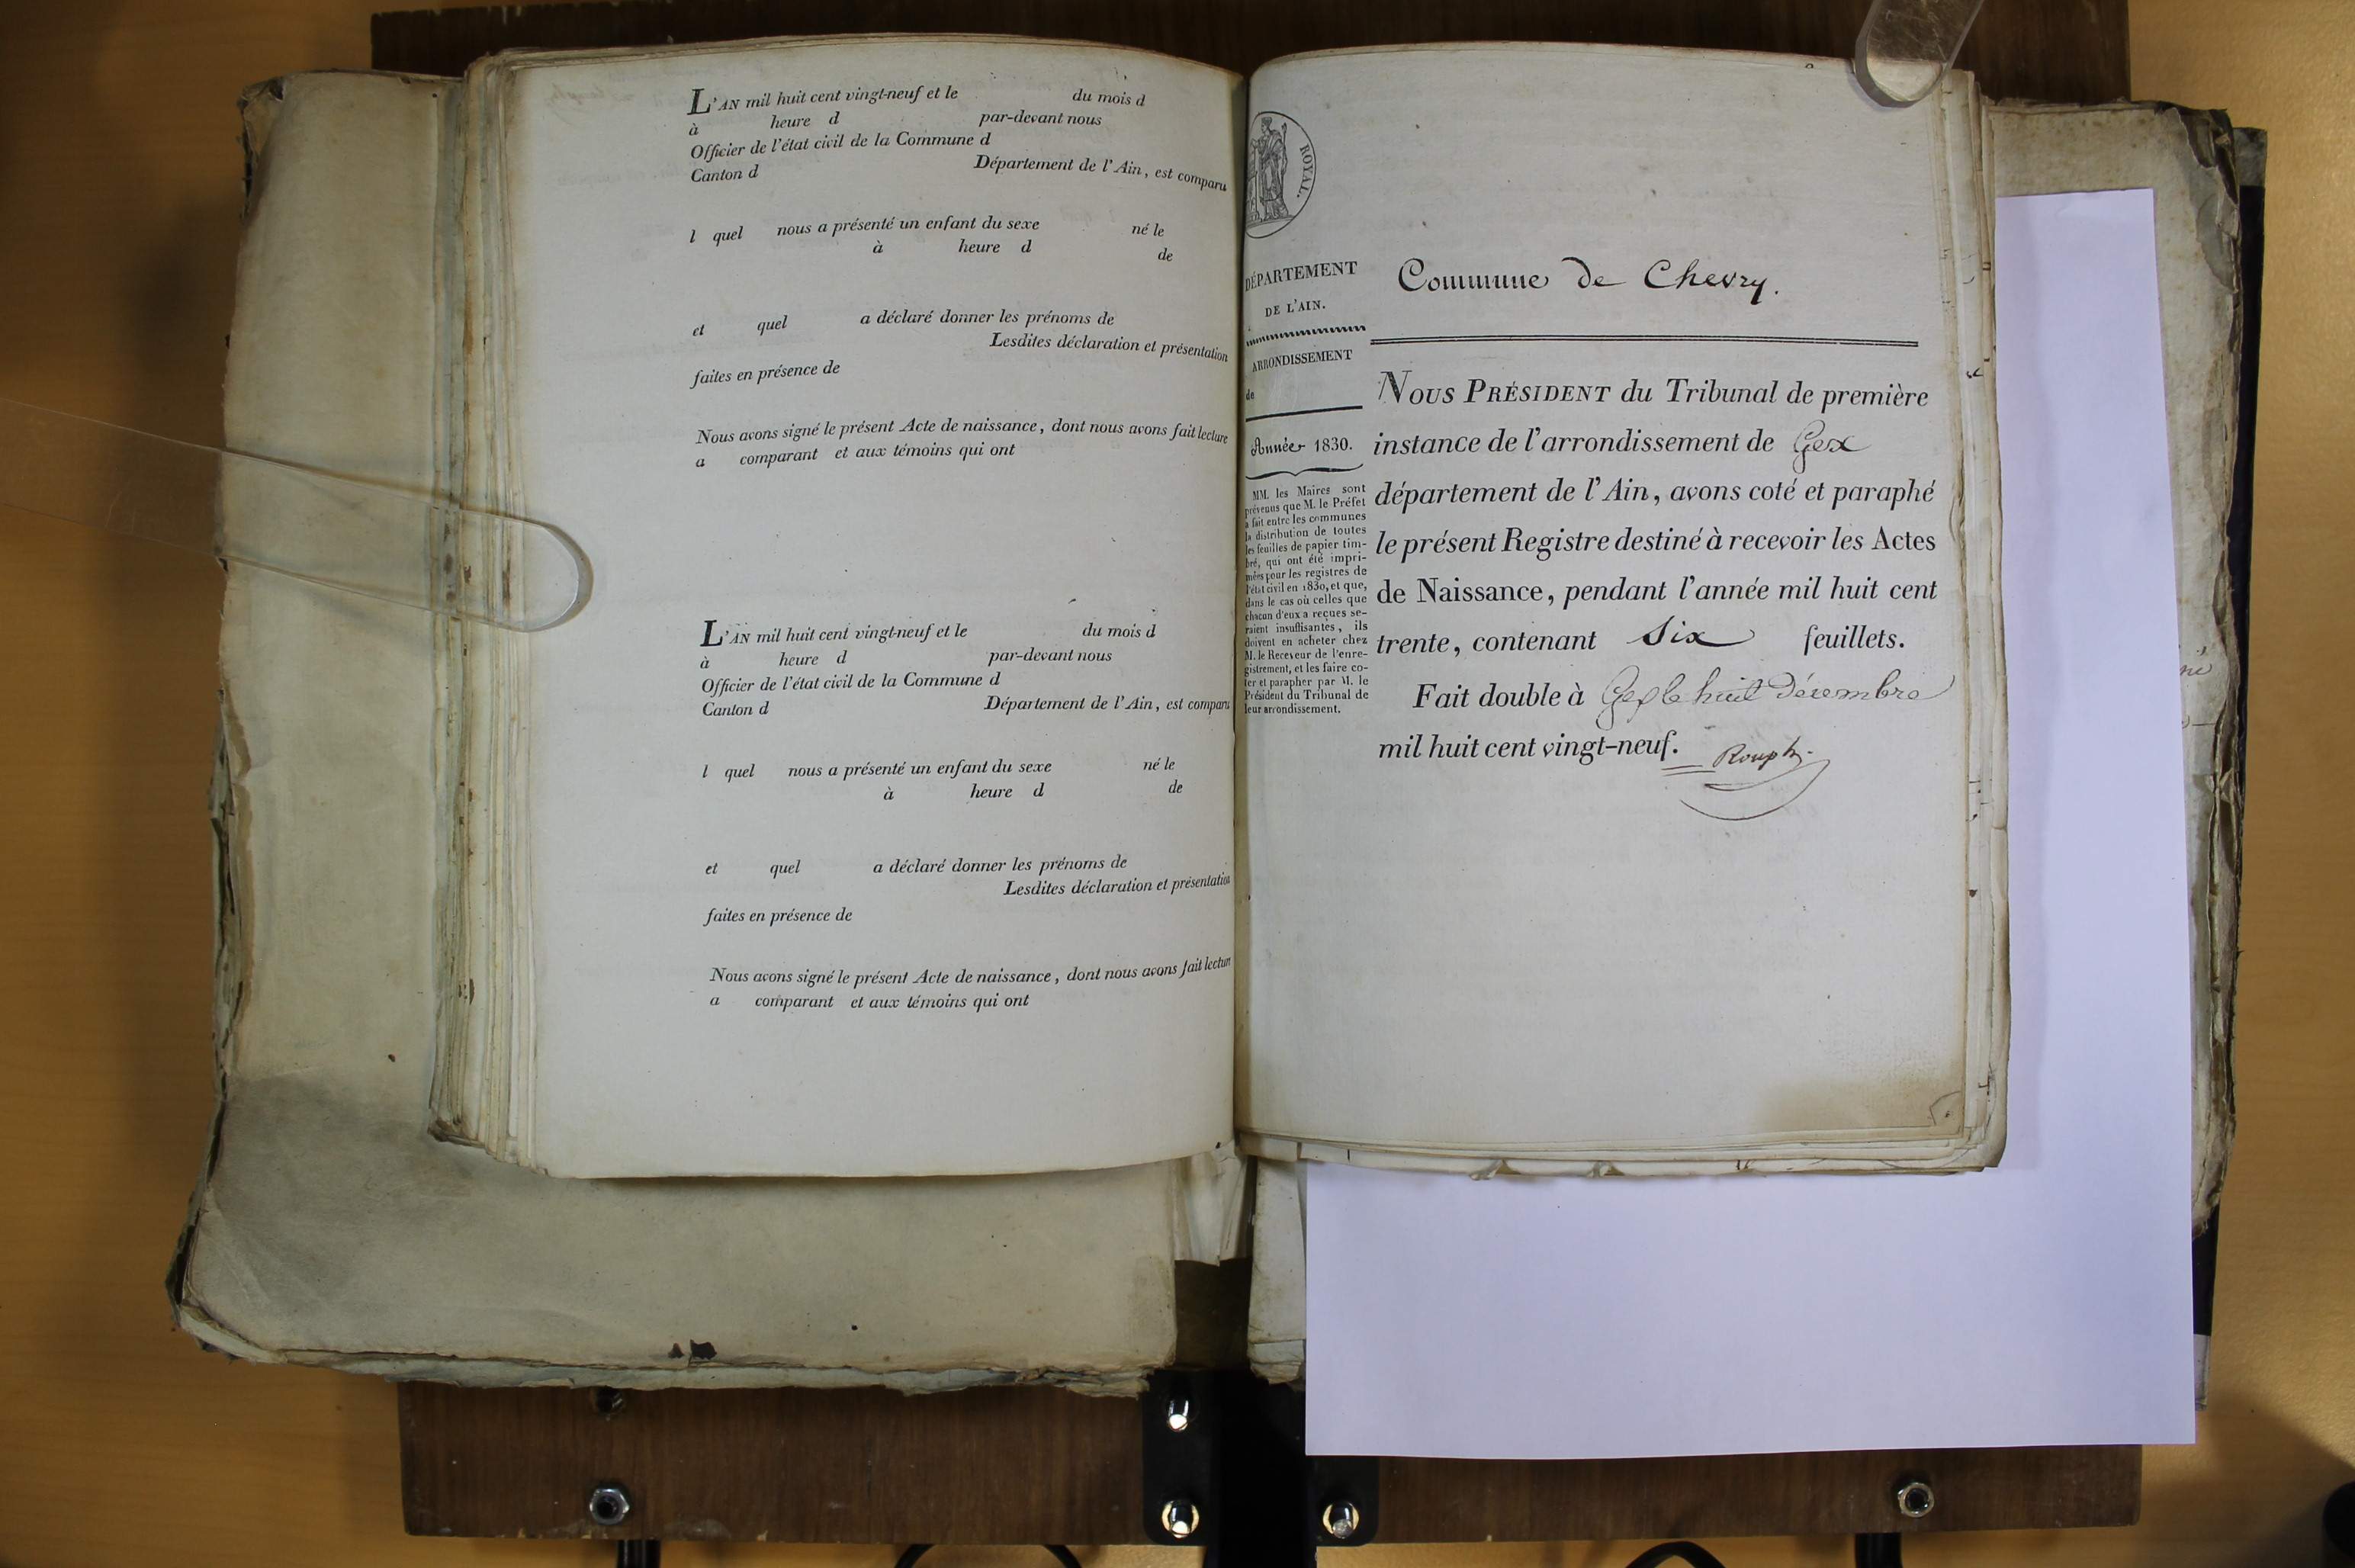 L'AN mil huit cent vingt-neuf et le du mois d
à heure d par-devant nous
Officier de l'état civil de la Commune d
Canton d Département de l'Ain, est comparu
l quel nous a présenté un enfant du sexe né le
à heure d de
et quel a déclaré donner les prénoms de
Lesdites déclaration et présentation
faites en présence de
Nous avons signé le présent Acte de naissance, dont nous avons fait lecture
a comparant et aux témoins qui ont
L'AN mil huit cent vingt-neuf et le du mois d
à heure d par-devant nous
Officier de l'état civil de la Commune d
Canton d Département de l'Ain, est comparu
l quel nous a présenté un enfant du sexe né le
à heure d de
et quel a déclaré donner les prénoms de
Lesdites déclaration et présentation
faites en présence de
Nous avons signé le présent Acte de naissance, dont nous avons fait lecture
a comparant et aux témoins qui ont
ROYAL.
DÉPARTEMENT
DE L'AIN.
ARRONDISSEMENT
de
Année 1830.
MM. les Maires sont
prévenus que M. le Préfet
a fait entre les communes
la distribution de toutes
les feuilles de papier tim-
bré, qui ont été impri-
mées pour les registres de
l'état civil en 1830, et que,
dans le cas où celles que
chacun d'eux a reçues se-
raient insuffisantes, ils
doivent en acheter chez
M. le Receveur de l'enre-
gistrement, et les faire co-
ter et parapher par M. le
Président du Tribunal de
leur arrondissement.
Commune de Chevry.
NOUS PRÉSIDENT du Tribunal de première
instance de l'arrondissement de Gex
département de l'Ain, avons coté et paraphé
le présent Registre destiné à recevoir les Actes
de Naissance, pendant l'année mil huit cent
trente, contenant Six feuillets.
Fait double à Gex le huit décembre
mil huit cent vingt-neuf.